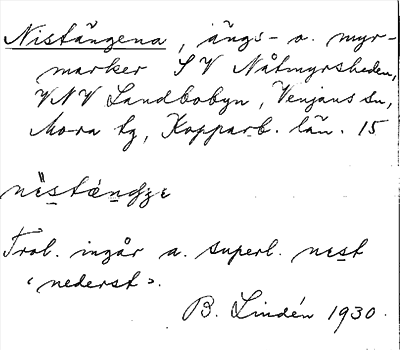 Nistängena, ängs- o. myr-
marker SV Nåtmyrsheden,
VNV Landbobyn, Venjans sn,
Mora tg, Kopparb. län. 15
Trol. ingår a. superl. nest
‹nederst›.
B. Lindén 1930.